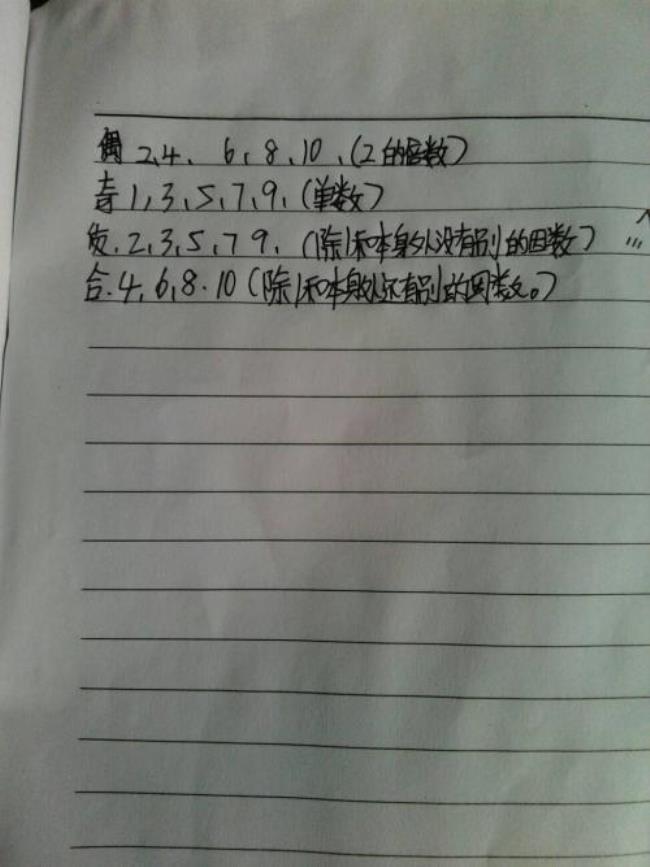 偶 2,4、6,8、10、(2的倍数)
奇 1,3、5,7、9、(单数)
质.2,3,5,7 9.(除1和本身外没有别的因数)
合.4,6,8.10(除1和本身外还有别的因数。)